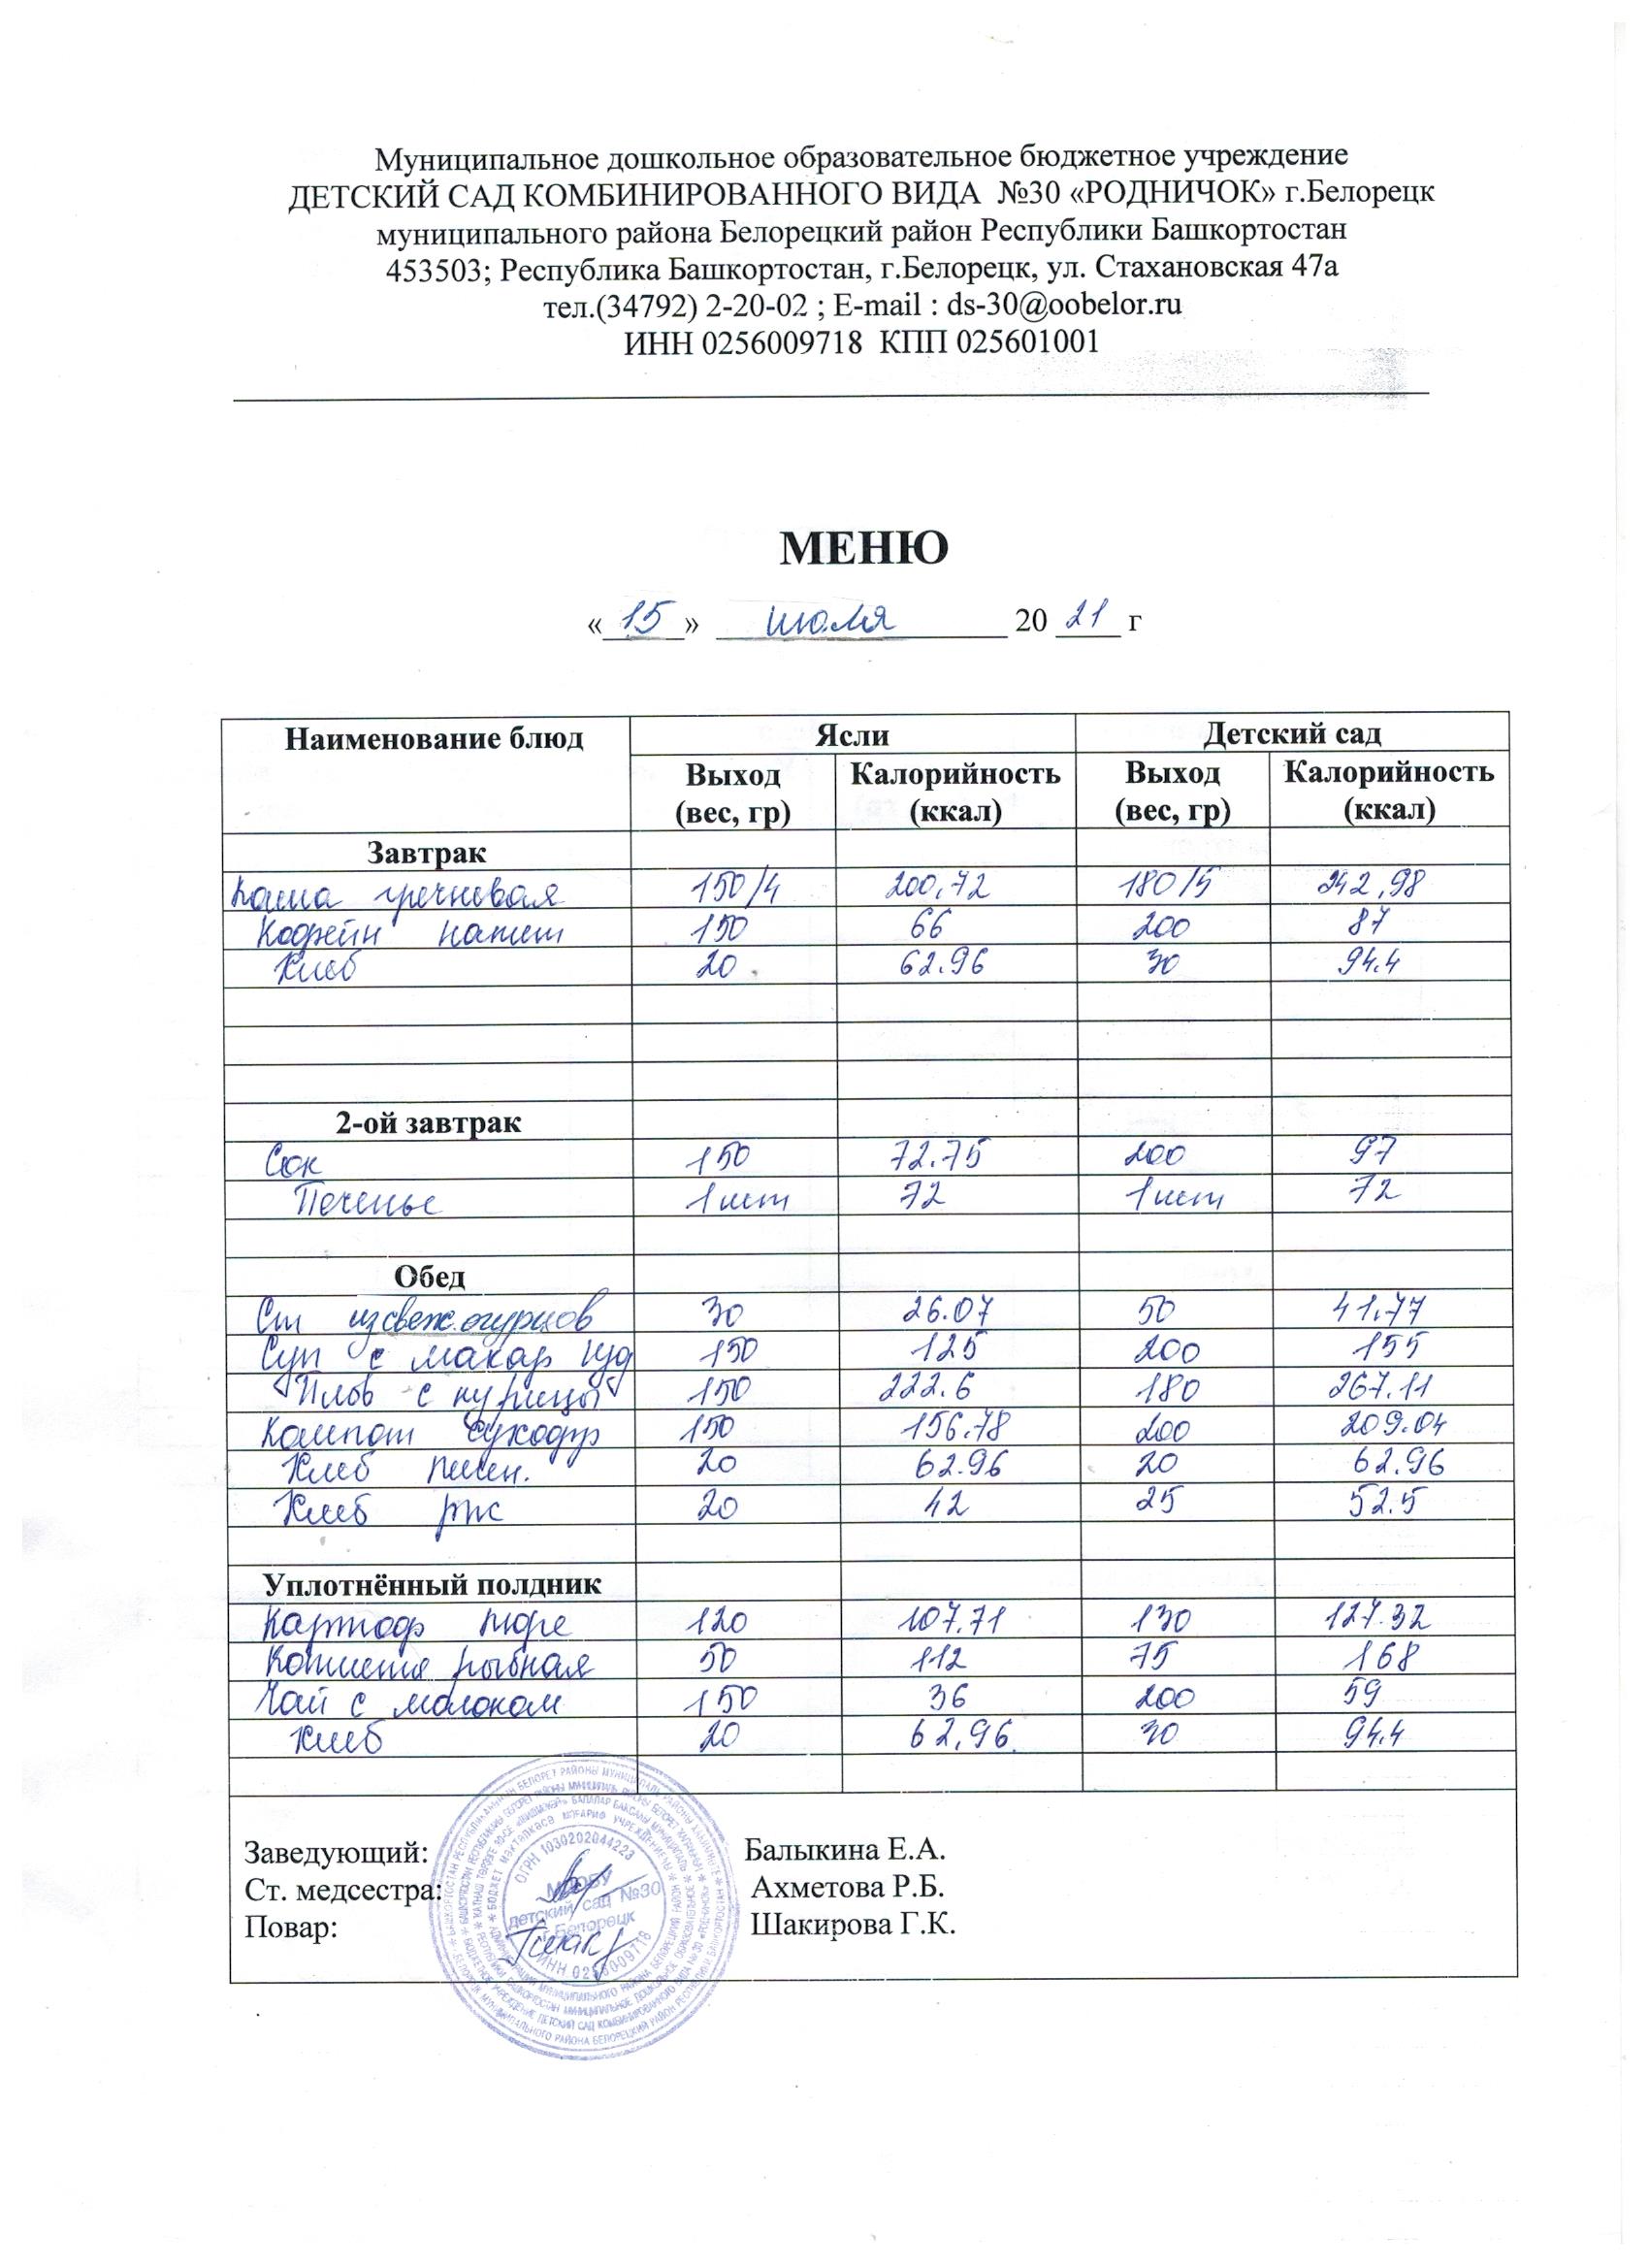 Муниципальное дошкольное образовательное бюджетное учреждение
ДЕТСКИЙ САД КОМБИНИРОВАННОГО ВИДА №30 «РОДНИЧОК» г.Белорецк
муниципального района Белорецкий район Республики Башкортостан
453503; Республика Башкортостан, г.Белорецк, ул. Стахановская 47а
тел.(34792) 2-20-02 ; E-mail : ds-30@oobelor.ru
ИНН 0256009718 КПП 025601001
МЕНЮ
« 15 » июля 20 21 г
Наименование блюд Ясли Детский сад
Выход (вес, гр) Калорийность (ккал) Выход (вес, гр) Калорийность (ккал)
Завтрак
Каша гречневая 150/4 200,72 180/5 242,98
Кофейн напит 150 66 200 87
Хлеб 20 62.96 30 94.4
2-ой завтрак
Сок 150 72.75 200 97
Печенье 1 шт 72 1 шт 72
Обед
Ст из свеж.огурцов 30 26.07 50 41.77
Суп с макар изд 150 125 200 155
Плов с курицы 150 222.6 180 267.11
Компот сухофр 150 156.78 200 209.04
Хлеб пшен. 20 62.96 20 62.96
Хлеб рж 20 42 25 52.5
Уплотнённый полдник
Картоф пюре 120 107.71 130 127.32
Котлета рыбная 50 112 75 168
Чай с молоком 150 36 200 59
Хлеб 20 62,96. 30 94.4
Заведующий: Балыкина Е.А.
Ст. медсестра: Ахметова Р.Б.
Повар: Шакирова Г.К.
ОГРН 1030202044223
МДОБУ
детский сад №30
г.Белорецк
ИНН 0256009718